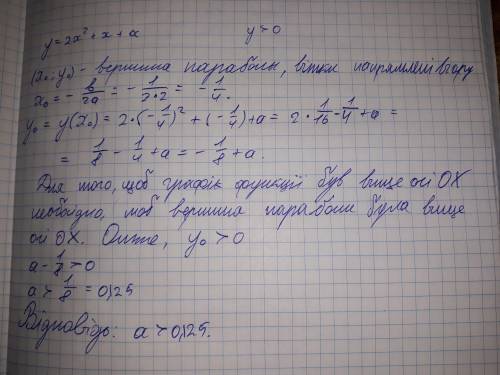 y = 2x² + x + a        y > 0
(x₀; y₀) - вершина параболы, вітки напрямлені вгору
x₀ = - b/2a = - 1/2·2 = - 1/4.
y₀ = y(x₀) = 2·(-1/4)² + (-1/4) + a = 2·1/16 - 1/4 + a =
= 1/8 - 1/4 + a = - 1/8 + a.
Для того, щоб графік функції був вище осі OX
необхідно, щоб вершина параболи була вище
осі OX. Отже, y₀ > 0
a - 1/8 > 0
a > 1/8 = 0,125
Відповідь: a > 0,125.